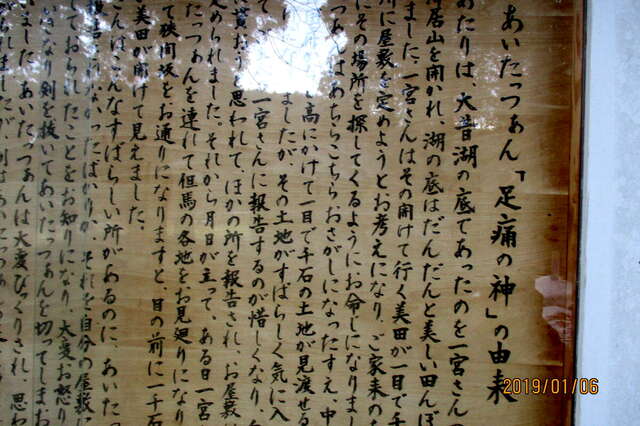 あいたっつぁん「足痛の神」の由来
あたりは、大昔湖の底であったのを一宮さんっ
居山を開かれ、湖の底はだんだんと美しい田んぼ
ました。一宮さんはその開けて行く美田が一目で千
川に屋敷を定めようとお考えになり、ご家来の
にその場所を探してくるようにお命じになりまし
つぁんはあちらこちらおさがしになったすえ、中
高にかけて一目で千石の土地が見渡せる
ましたが、その土地がすばらしく気に入
一宮さんに報告するのが惜しくなり、
貰おうと思われて、ほかの所を報告され、お屋敷
められました。それから月日が立って、ある日一宮
たっつぁんを連れて但馬の各地をお見廻りになり
て狭間坂をお通りになりますと、目の前に一千石
美田が開けて見えました。
さんはこんなすばらしい所があるのに、あいたっ
報告しなかったばかりか、それを自分の屋敷に
しておられたことをお知りになり、大変お怒り
いきなり剣を抜いてあいたっつぁんを切ってしまお
いました。あいたっつぁんは大変びっくりされ、思わ
2019/01/06